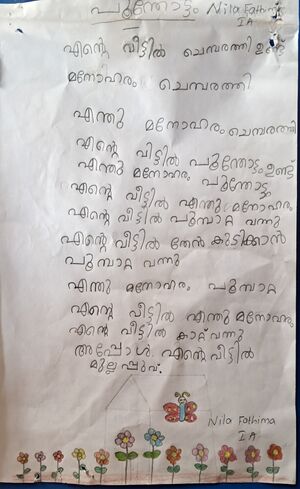 പൂന്തോട്ടം Nila Fathima
I A
എന്റെ വീട്ടിൽ ചെമ്പരത്തി ഉണ്ട്
മനോഹരം ചെമ്പരത്തി
എന്തു മനോഹരം ചെമ്പരത്തി
എന്റെ വിട്ടിൽ പൂന്തോട്ടം ഉണ്ട്
എന്തു മനോഹരം പൂന്തോട്ടം
എന്റെ വീട്ടിൽ എന്തു മനോഹരം
എന്റെ വീട്ടിൽ പൂമ്പാറ്റ വന്നു
എന്റെ വീട്ടിൽ തേൻ കുടിക്കാൻ
പൂമ്പാറ്റ വന്നു
എന്തു മനോഹരം പൂമ്പാറ്റ
എന്റെ വീട്ടിൽ എന്തു മനോഹരം
എന്റെ വീട്ടിൽ കാറ്റ് വന്നു
അപ്പോൾ എന്റെ വീട്ടിൽ
മുല്ലപ്പൂവ്.
Nila Fathima
I A